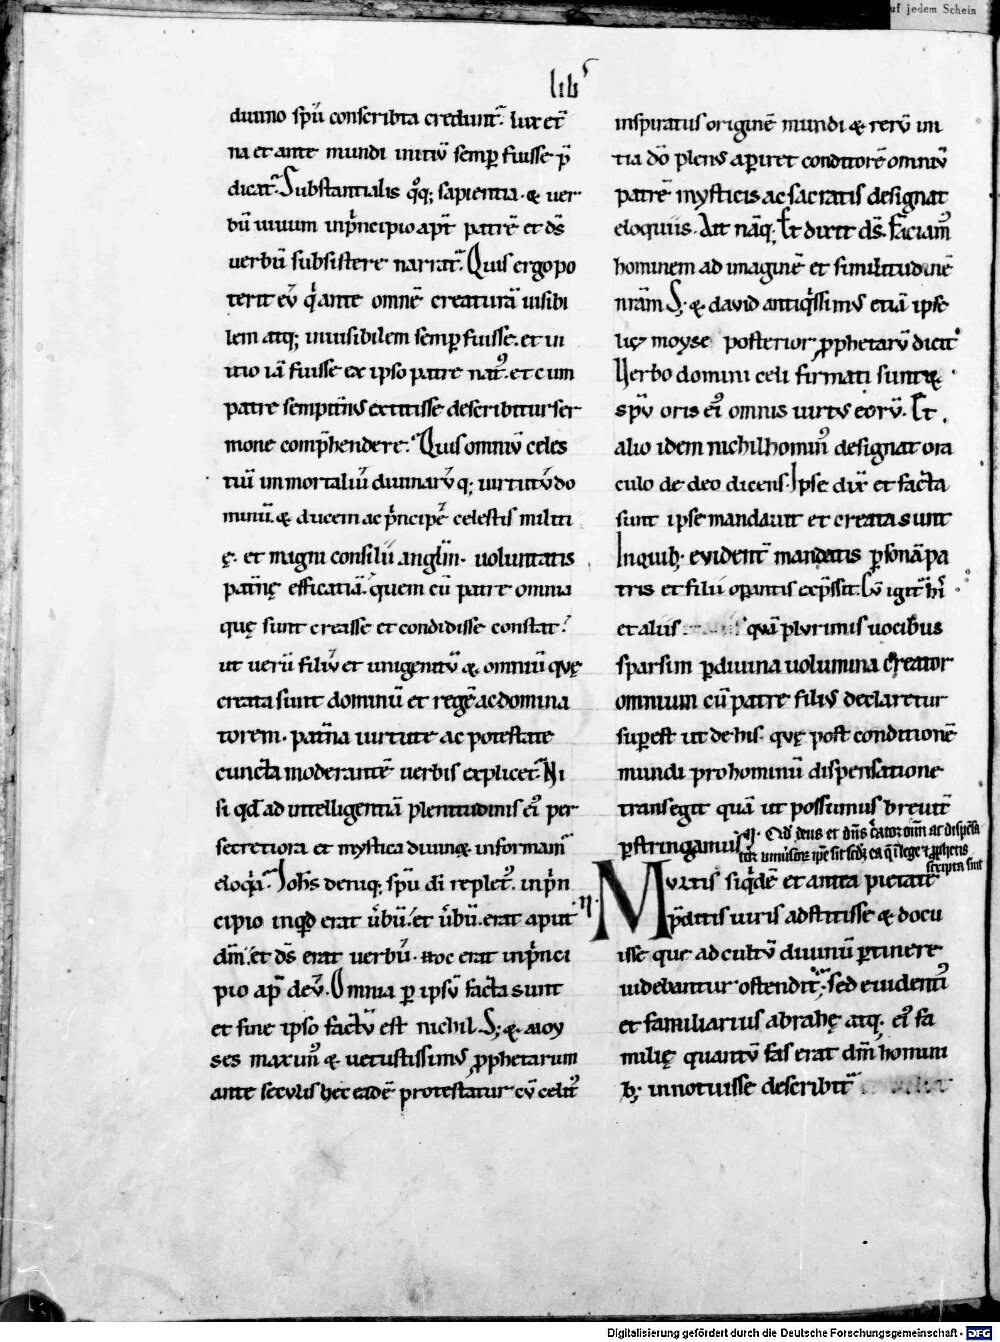 uf jedem Schein
lib͛
diuino sp̄u conscribta creduntᷣ. lux et̄
na et ante mundi initiū semꝑ fuisse p̄
dicatᷣ. Substantialis qͦq; sapientia. & uer
bū uiuum inpͥncipio apt̄ patrē et ds̄
uerbū subsistere narratᷣ. Quis ergo po
terit eū qͥ ante omnē creaturā uisibi
lem atq; inuisibilem semꝑ fuisse. et in
itio iā fuisse ex ipso patre natꝰ. et cum
patre sempitn̄us extitisse describitur ser
mone comp̄hendere. Quis omniū celes
tiū immortaliū diuinarūq; uirtutū do
minū. & ducem ac pͥncipē celestis militi
ę. et magni consilii angl̄m. uoluntatis
patn̄ę efficatiā. quem cū patre omnia
quę sunt creasse et condidisse constat.
ut uerū filiū et unigenitū & omniū quę
creata sunt dominū et regē ac domina
torem. patn̄a uirtute ac potestate
cuncta moderantē uerbis explicetᷣ. Ni
si qd̄ ad intelligentiā plenitudinis eiꝰ per
secretiora et mystica diuinę informamᷣ
eloqͥa. Joh̄s deniq; sp̄u dī repletꝰ. inpͥn
cipio inqͥd erat ūbū. et ūbū. erat aput
dm̄. et ds̄ erat uerbū. Hoc erat inpͥnci
pio ap̄ deū. Omnia ꝑ ipsū facta sunt
et sine ipso factū est nichil. S; & moy
ses maximꝰ & uetustissimus ꝓphetarum
ante seculis hec eadē protestatur cū celitꝰ
inspiratus originē mundi & rerū ini
tia dō plenus aperiret conditorē omniū
patrē mysticis ac sacratis designat
eloquiis. Ait nāq; Et dixit ds̄. faciamꝰ
hominem ad imaginē et similitudinē
nr̄am. S; & dauid antiqͥssimus etiā ipse
licę moyse posterior ꝓphetarū dicit
Uerbo domini celi firmati sunt &
spū oris eiꝰ omnis uirtus eorū. Et
alio idem nichilhominꝰ designat ora
culo de deo dicens. Ipse dix̄ et facta
sunt ipse mandauit et creata sunt
Inquib; euidentᷣ mandatis ꝑsonā pa
tris et filii oꝑantis exp̄ssit. Cū igitᷣ hī
et aliis quā plurimis uocibus
sparsim ꝑ diuina uolumina creator
omnium cū patre filius declaretur
suꝑest ut de his. quę post conditionē
mundi pro hominū dispensatione
transegit quā ut possumus breuitᷣ
ꝑstringamus
II. Qd̄ deus et dn̄s creator om̄ium ac dispensa
tor uniuersorum ip̄e sit scd̄m ea que in lege et ꝓphetis
scripta sunt
II.
Multis siqͥdē et antea pietate
p̄ditis uiris adstitisse & docu
isse que ad cultū diuinū ꝑtinere
uidebantur ostenditᷣ. sed euidentiꝰ
et familiarius abrahę atq; eiꝰ fa
milię quantū fas erat dm̄ homini
b; innotuisse describitᷣ
Digitalisierung gefördert durch die Deutsche Forschungsgemeinschaft - DFG